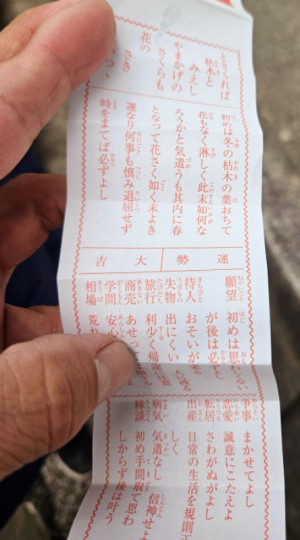 ときくれば
枯木と
みえし
やまかげの
さくらも
花の
さき
初めは冬の枯木の葉おちて
花もなく淋しく此末如何な
ろうかと気遣うも其内に春
となって花さく如く末よき
運なり何事も慎み退屈せず
時をまてば必ずよし
運勢
大吉
願望 初めは思
が後は必ず
待人 おそいが
失物 出にくい
旅行 利少く帰
商売 あせっ
学問 安心
相場 荒れ
争事 まかせてよし
恋愛 誠意にこたえよ
転居 さわがぬがよし
出産 日常の生活を規則正
しく
病気 気遣なし 信神せよ
縁談 初め手間取て思わ
しからず後は叶う